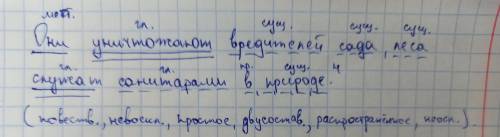 мест. гл. сущ. сущ. сущ.
Они уничтожают вредителей сада, леса
гл. гл. пр. сущ. ч
служат санитарами в природе.
(повеств., невоскл., простое, двусостав., распространённое, неосл.).